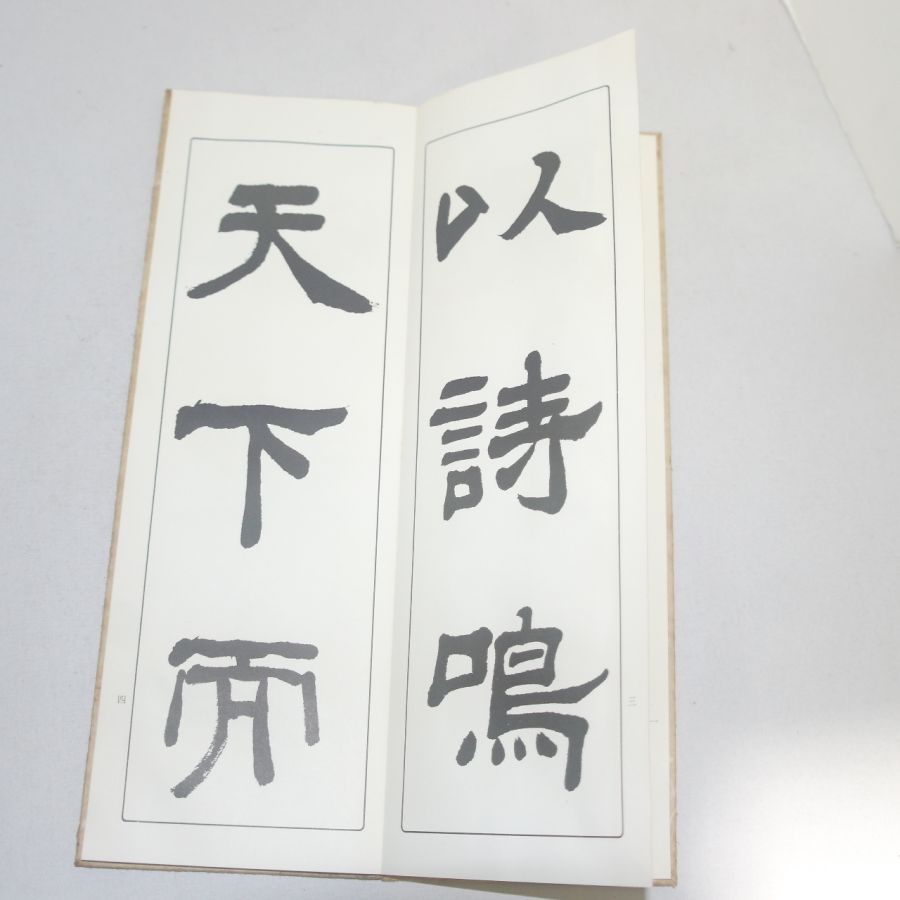 以詩鳴
三
天下而
四